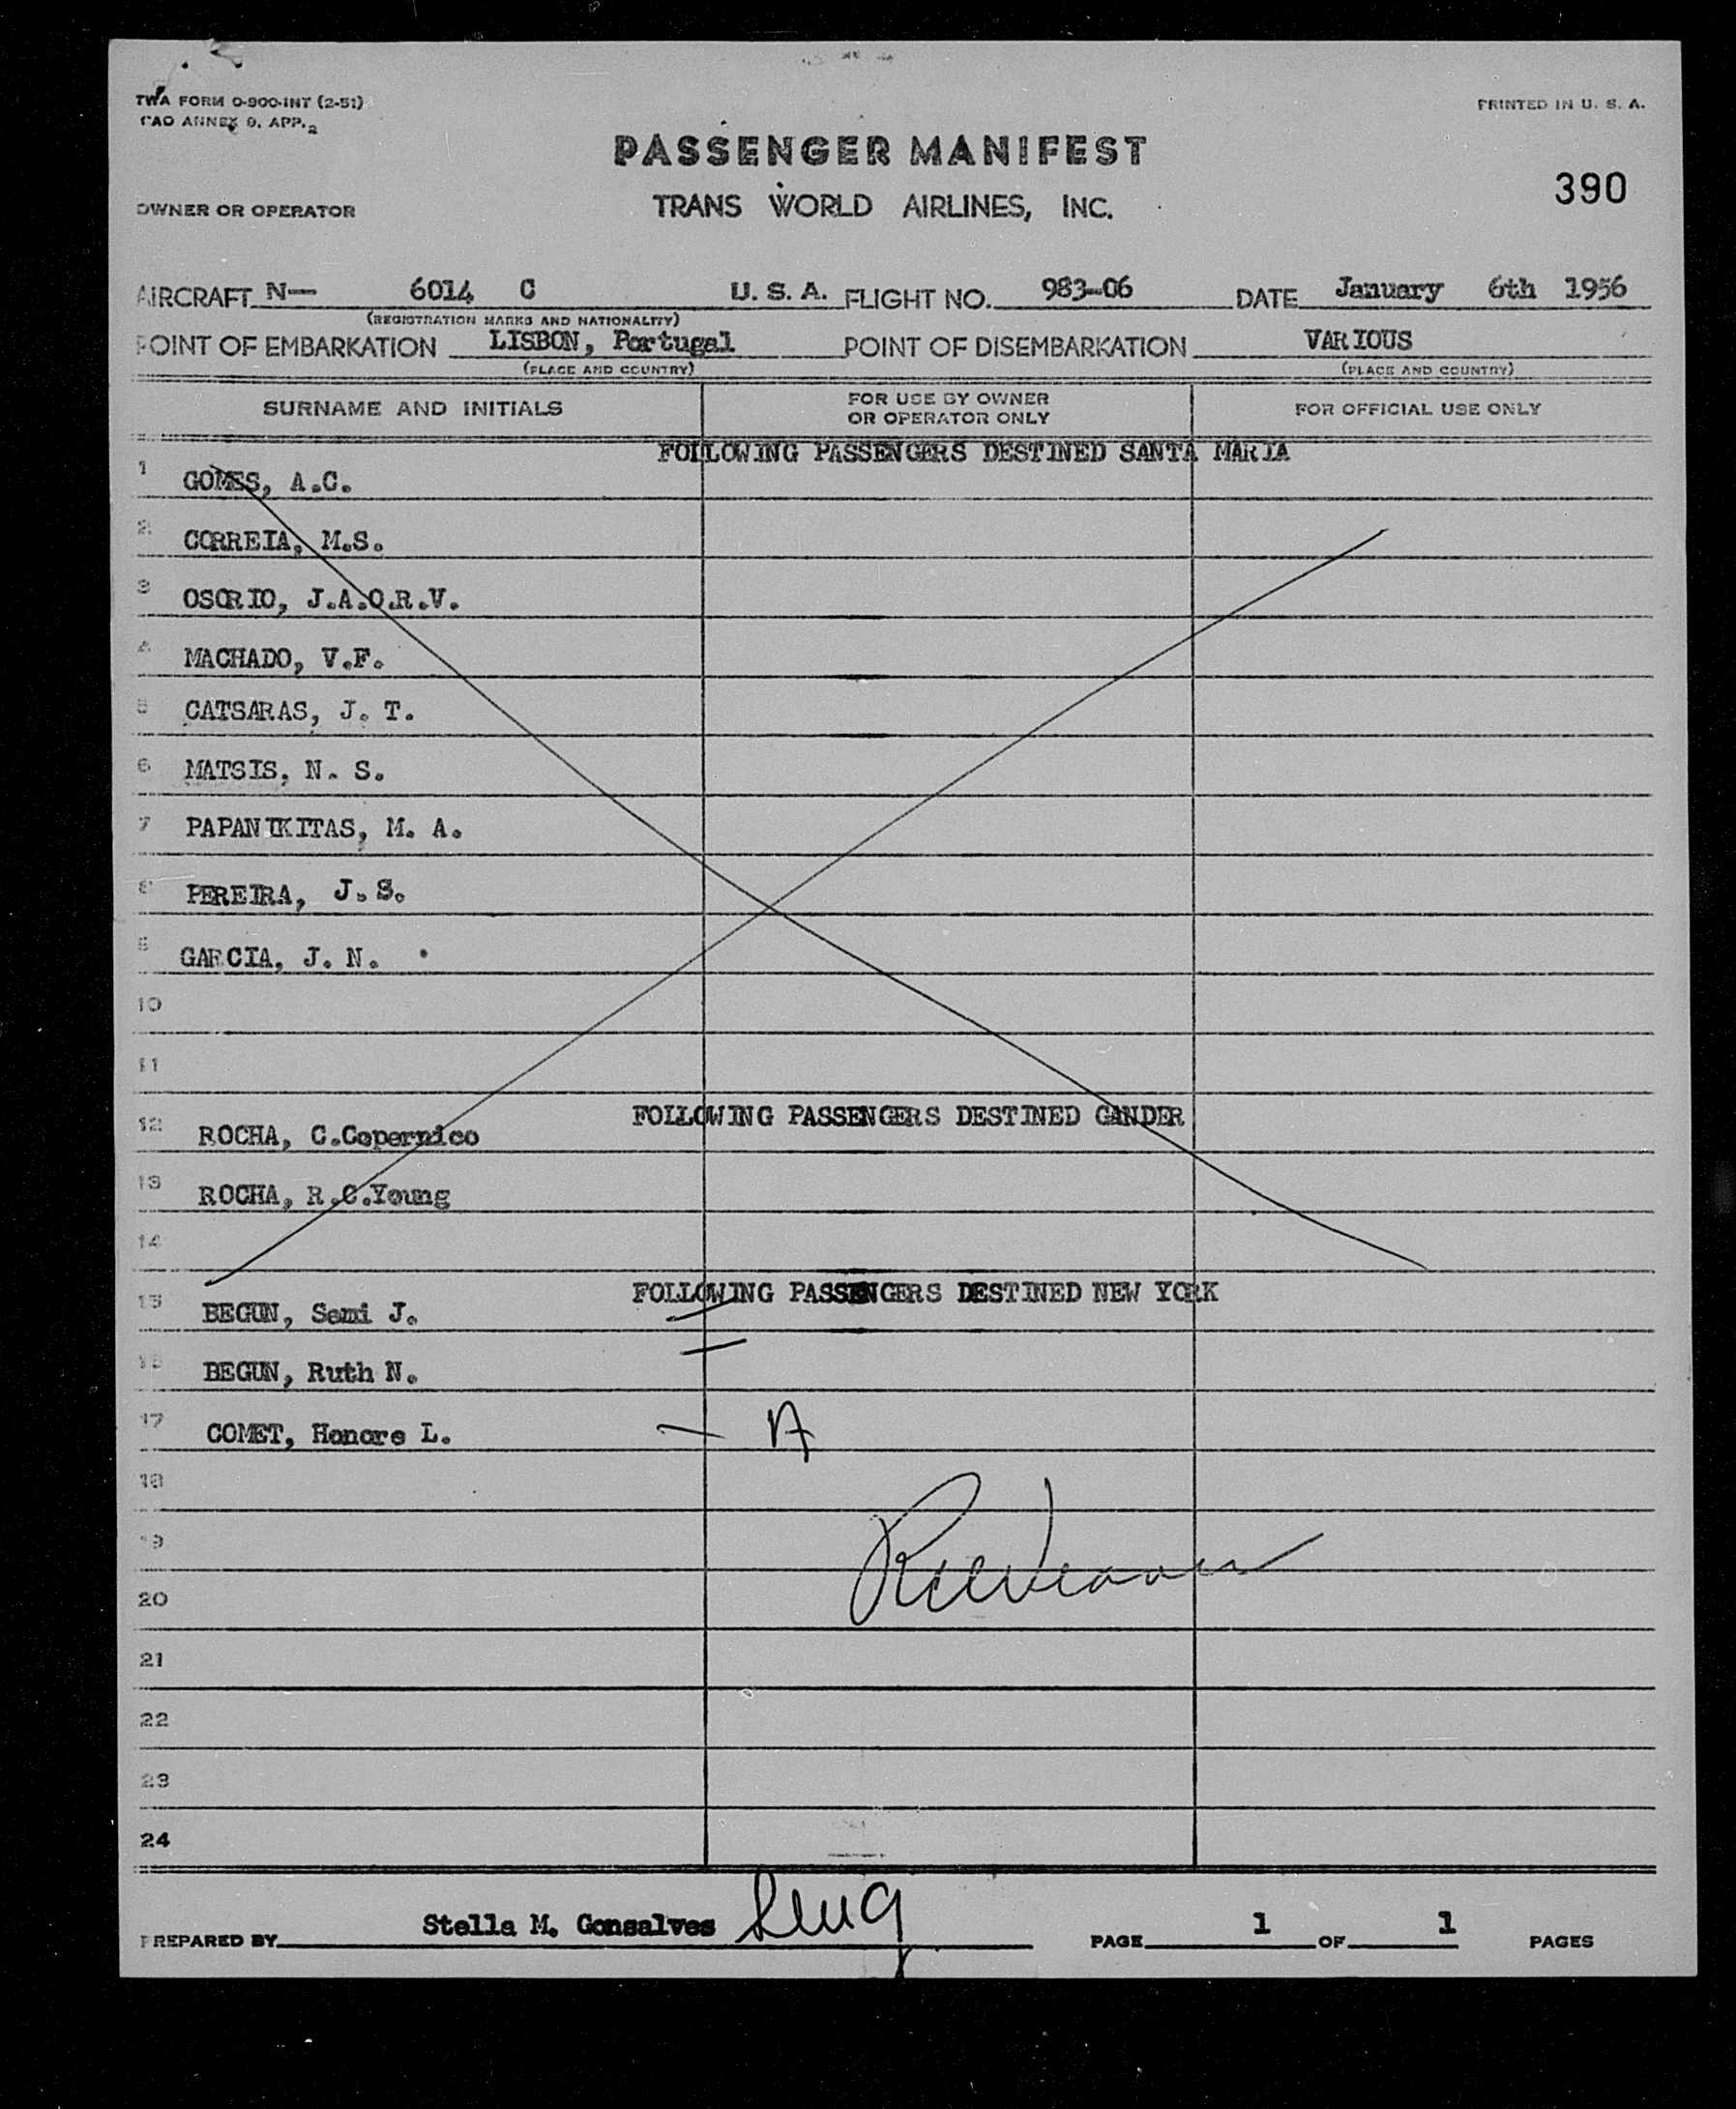 TWA FORM O-900-INT (2-51)
ICAO ANNEX 9, APP. 2
PRINTED IN U. S. A.
PASSENGER MANIFEST
390
OWNER OR OPERATOR TRANS WORLD AIRLINES, INC.
AIRCRAFT N— 6014 C U. S. A. FLIGHT NO. 983-06 DATE January 6th 1956
(REGISTRATION MARKS AND NATIONALITY)
POINT OF EMBARKATION LISBON, Portugal POINT OF DISEMBARKATION VARIOUS
(PLACE AND COUNTRY) (PLACE AND COUNTRY)
SURNAME AND INITIALS FOR USE BY OWNER OR OPERATOR ONLY FOR OFFICIAL USE ONLY
FOLLOWING PASSENGERS DESTINED SANTA MARIA
1 GOMES, A.C.
2 CORREIA, M.S.
3 OSORIO, J.A.O.R.V.
4 MACHADO, V.F.
5 CATSARAS, J. T.
6 MATSIS, N. S.
7 PAPANIKITAS, M. A.
8 PEREIRA, J.S.
9 GARCIA, J. N.
10
11
FOLLOWING PASSENGERS DESTINED GANDER
12 ROCHA, C.Copernico
13 ROCHA, R.C.Young
14
FOLLOWING PASSENGERS DESTINED NEW YORK
15 BEGUN, Semi J.
16 BEGUN, Ruth N.
17 COMET, Honore L. A
18
19
20
21
22
23
24
PREPARED BY Stella M. Gonsalves PAGE 1 OF 1 PAGES